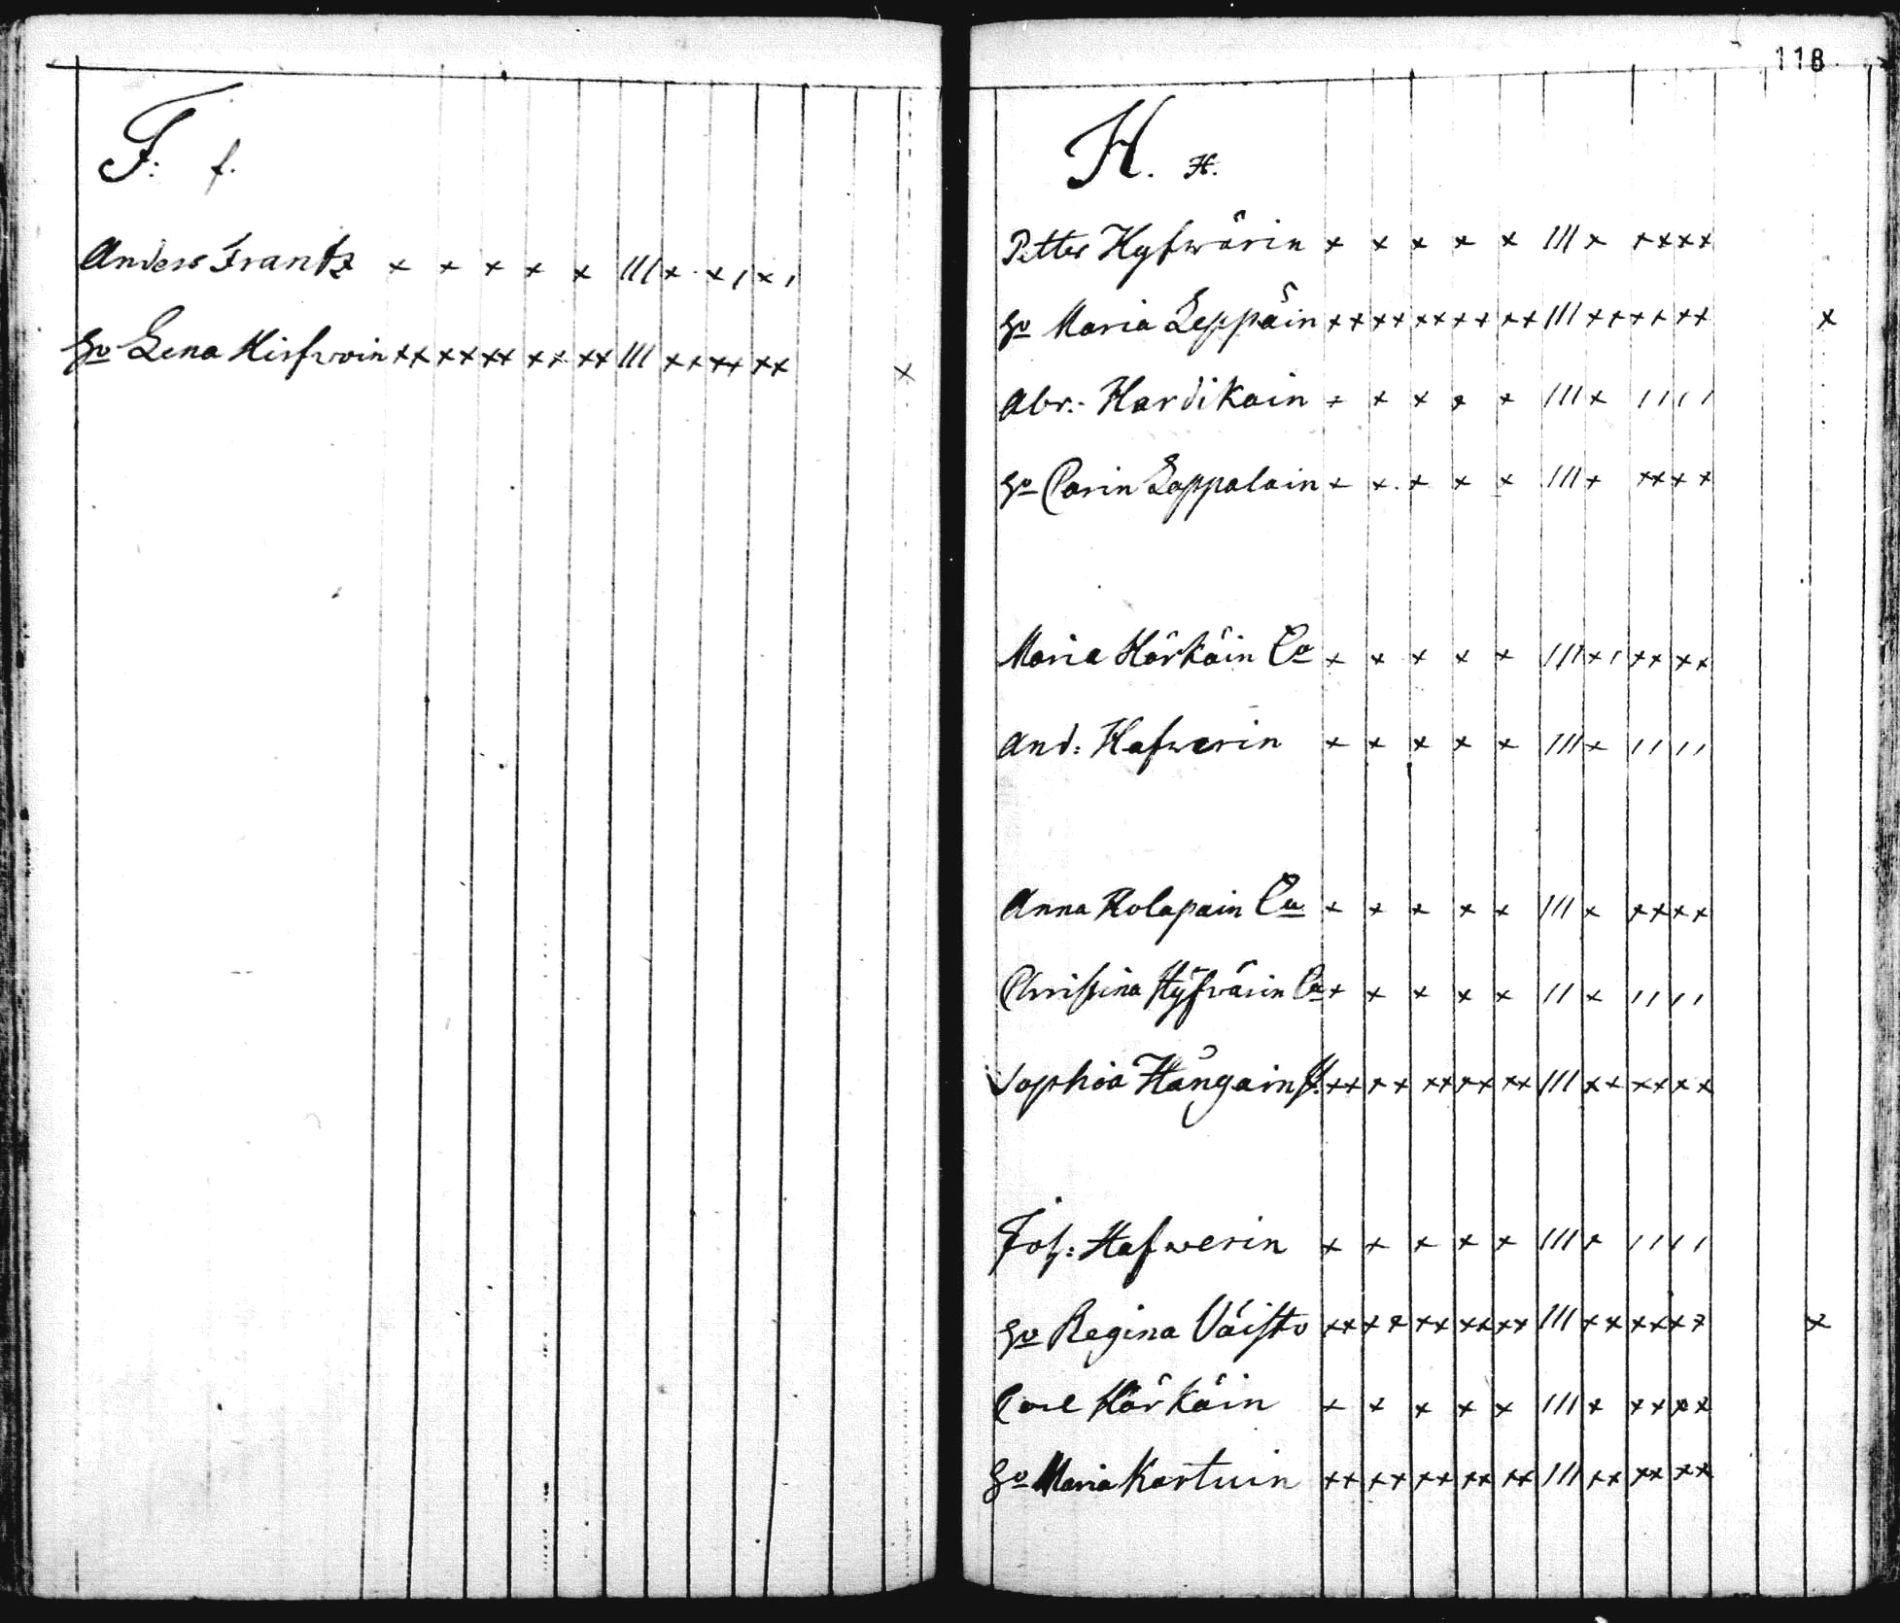 F: f.
Anders Frantz × × × × × /// × × / × /
Hu Lena Hirfwoin ×× ×× ×× ×× ×× /// ×× ×× ×× ×
118
H. H.
Petter Hyfwärin × × × × × /// × ××××
Hu Maria Leppäin ×× ×× ×× ×× ×× /// ×× ×× ×× ×
Abr: Hardikain × × × × × /// × / / / /
Hu Carin Lappalain × × × × × /// × ××××
Maria Härkäin Ea × × × × × /// × / ×× ××
And: Hafwerin × × × × × /// × / / / /
Anna Holapain Ea × × × × × /// × ××××
Christina Hyfvärin Ea × × × × × // × / / / /
Sophia Hångain ×× ×× ×× ×× ×× /// ×× ×× ××
Joh: Hafwerin × × × × × /// × / / / /
Hu Regina Väisto ×× ×× ×× ×× ×× /// ×× ×× ×× ×
Carl Härkäin × × × × × /// × ×× ××
Hu Maria Kartuin ×× ×× ×× ×× ×× /// ×× ×× ××